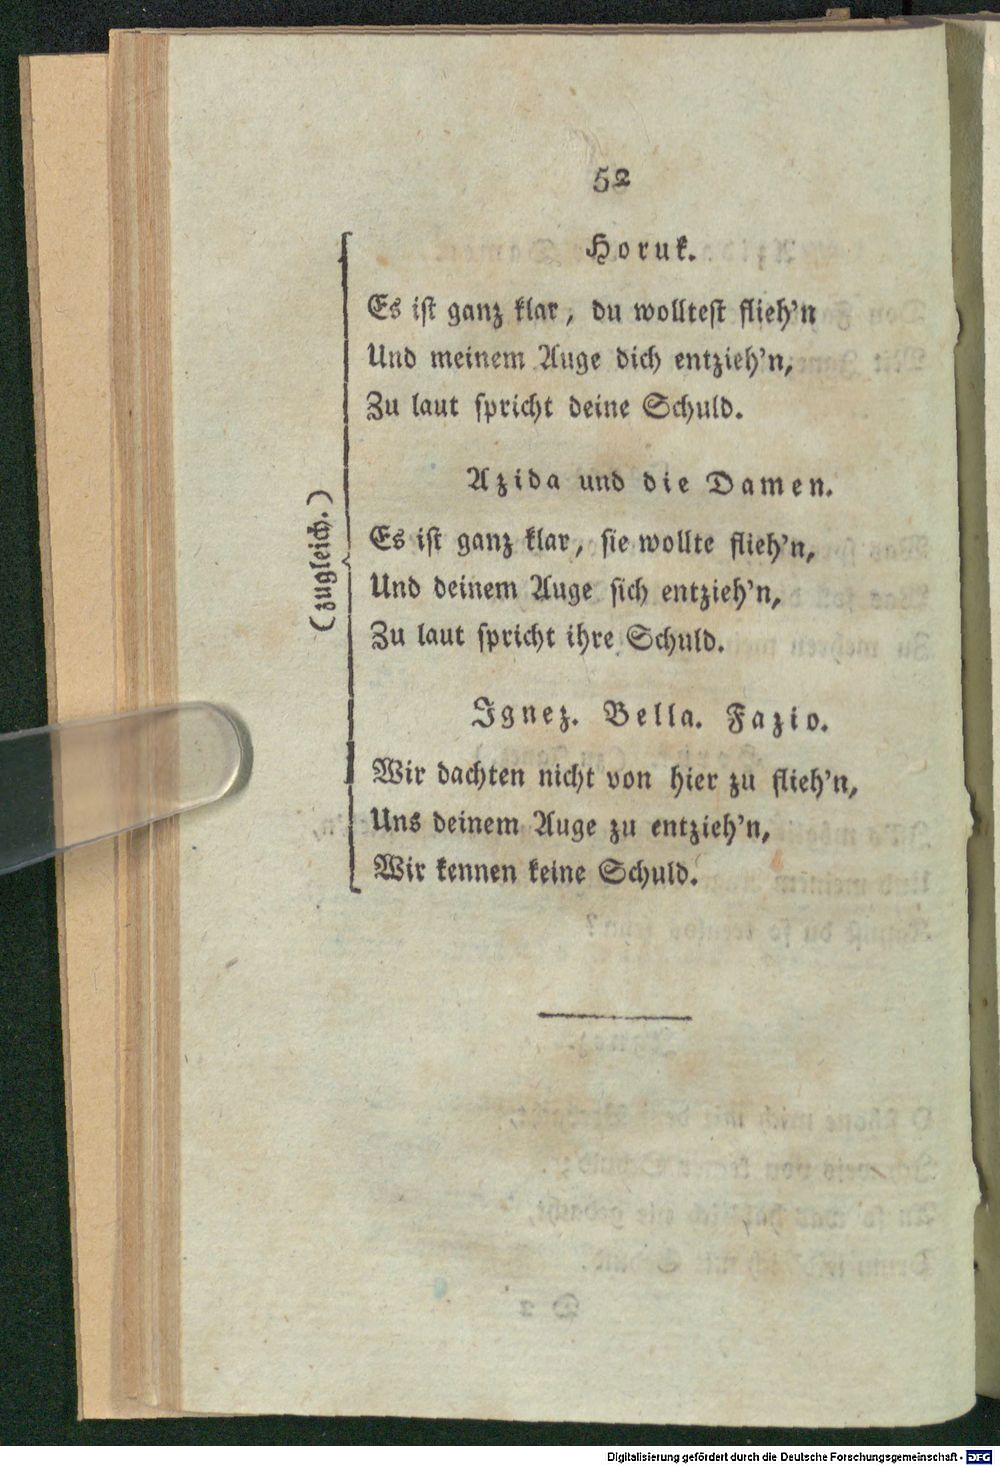 52
Horuk.
Es ist ganz klar, du wolltest flieh'n
Und meinem Auge dich entzieh'n,
Zu laut spricht deine Schuld.
Azida und die Damen.
Es ist ganz klar, sie wollte flieh'n,
Und deinem Auge sich entzieh'n,
Zu laut spricht ihre Schuld.
(zugleich.)
Ignez. Bella. Fazio.
Wir dachten nicht von hier zu flieh'n,
Uns deinem Auge zu entzieh'n,
Wir kennen keine Schuld.
Digitalisierung gefördert durch die Deutsche Forschungsgemeinschaft - DFG